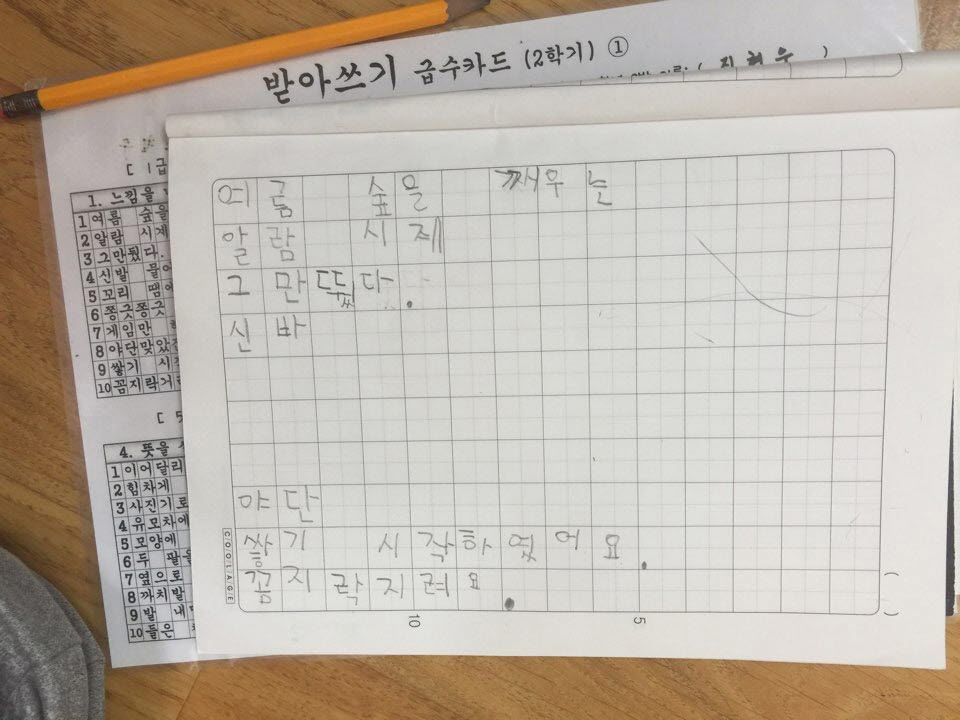 받아쓰기 급수카드 (2학기) ①
[ 1급
1. 느낌을
1 여름 숲을
2 알람 시계
3 그만뒀다.
4 신발 물어
5 꼬리 땜에
6 쫑긋쫑긋
7 게임만
8 야단맞았
9 쌓기 시
10 꼼지락거
[ 5
4. 뜻을
1 이어달리
2 힘차게
3 사진기로
4 유모차에
5 모양에
6 두 팔을
7 옆으로
8 까치발
9 발 내
10 들은
여름 숲을 째우는
알람 시졔
그만뚰다.
신바
야단
쌓기 시작하였어요.
꼼지락지려요.
COOLAGE
10 5
( )